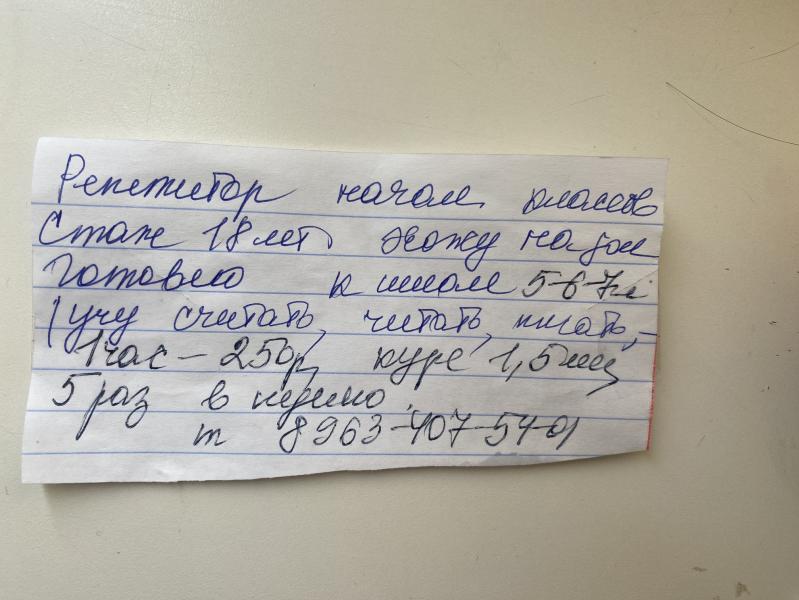 Репетитор начальн. классов
Стаж 18 лет, хожу на дом
Готовлю к школе 5-6-7 л
(учу считать, читать, писать, –
1 час – 250 р, курс 1,5 мец
5 раз в неделю.
т 8963-407-54-01